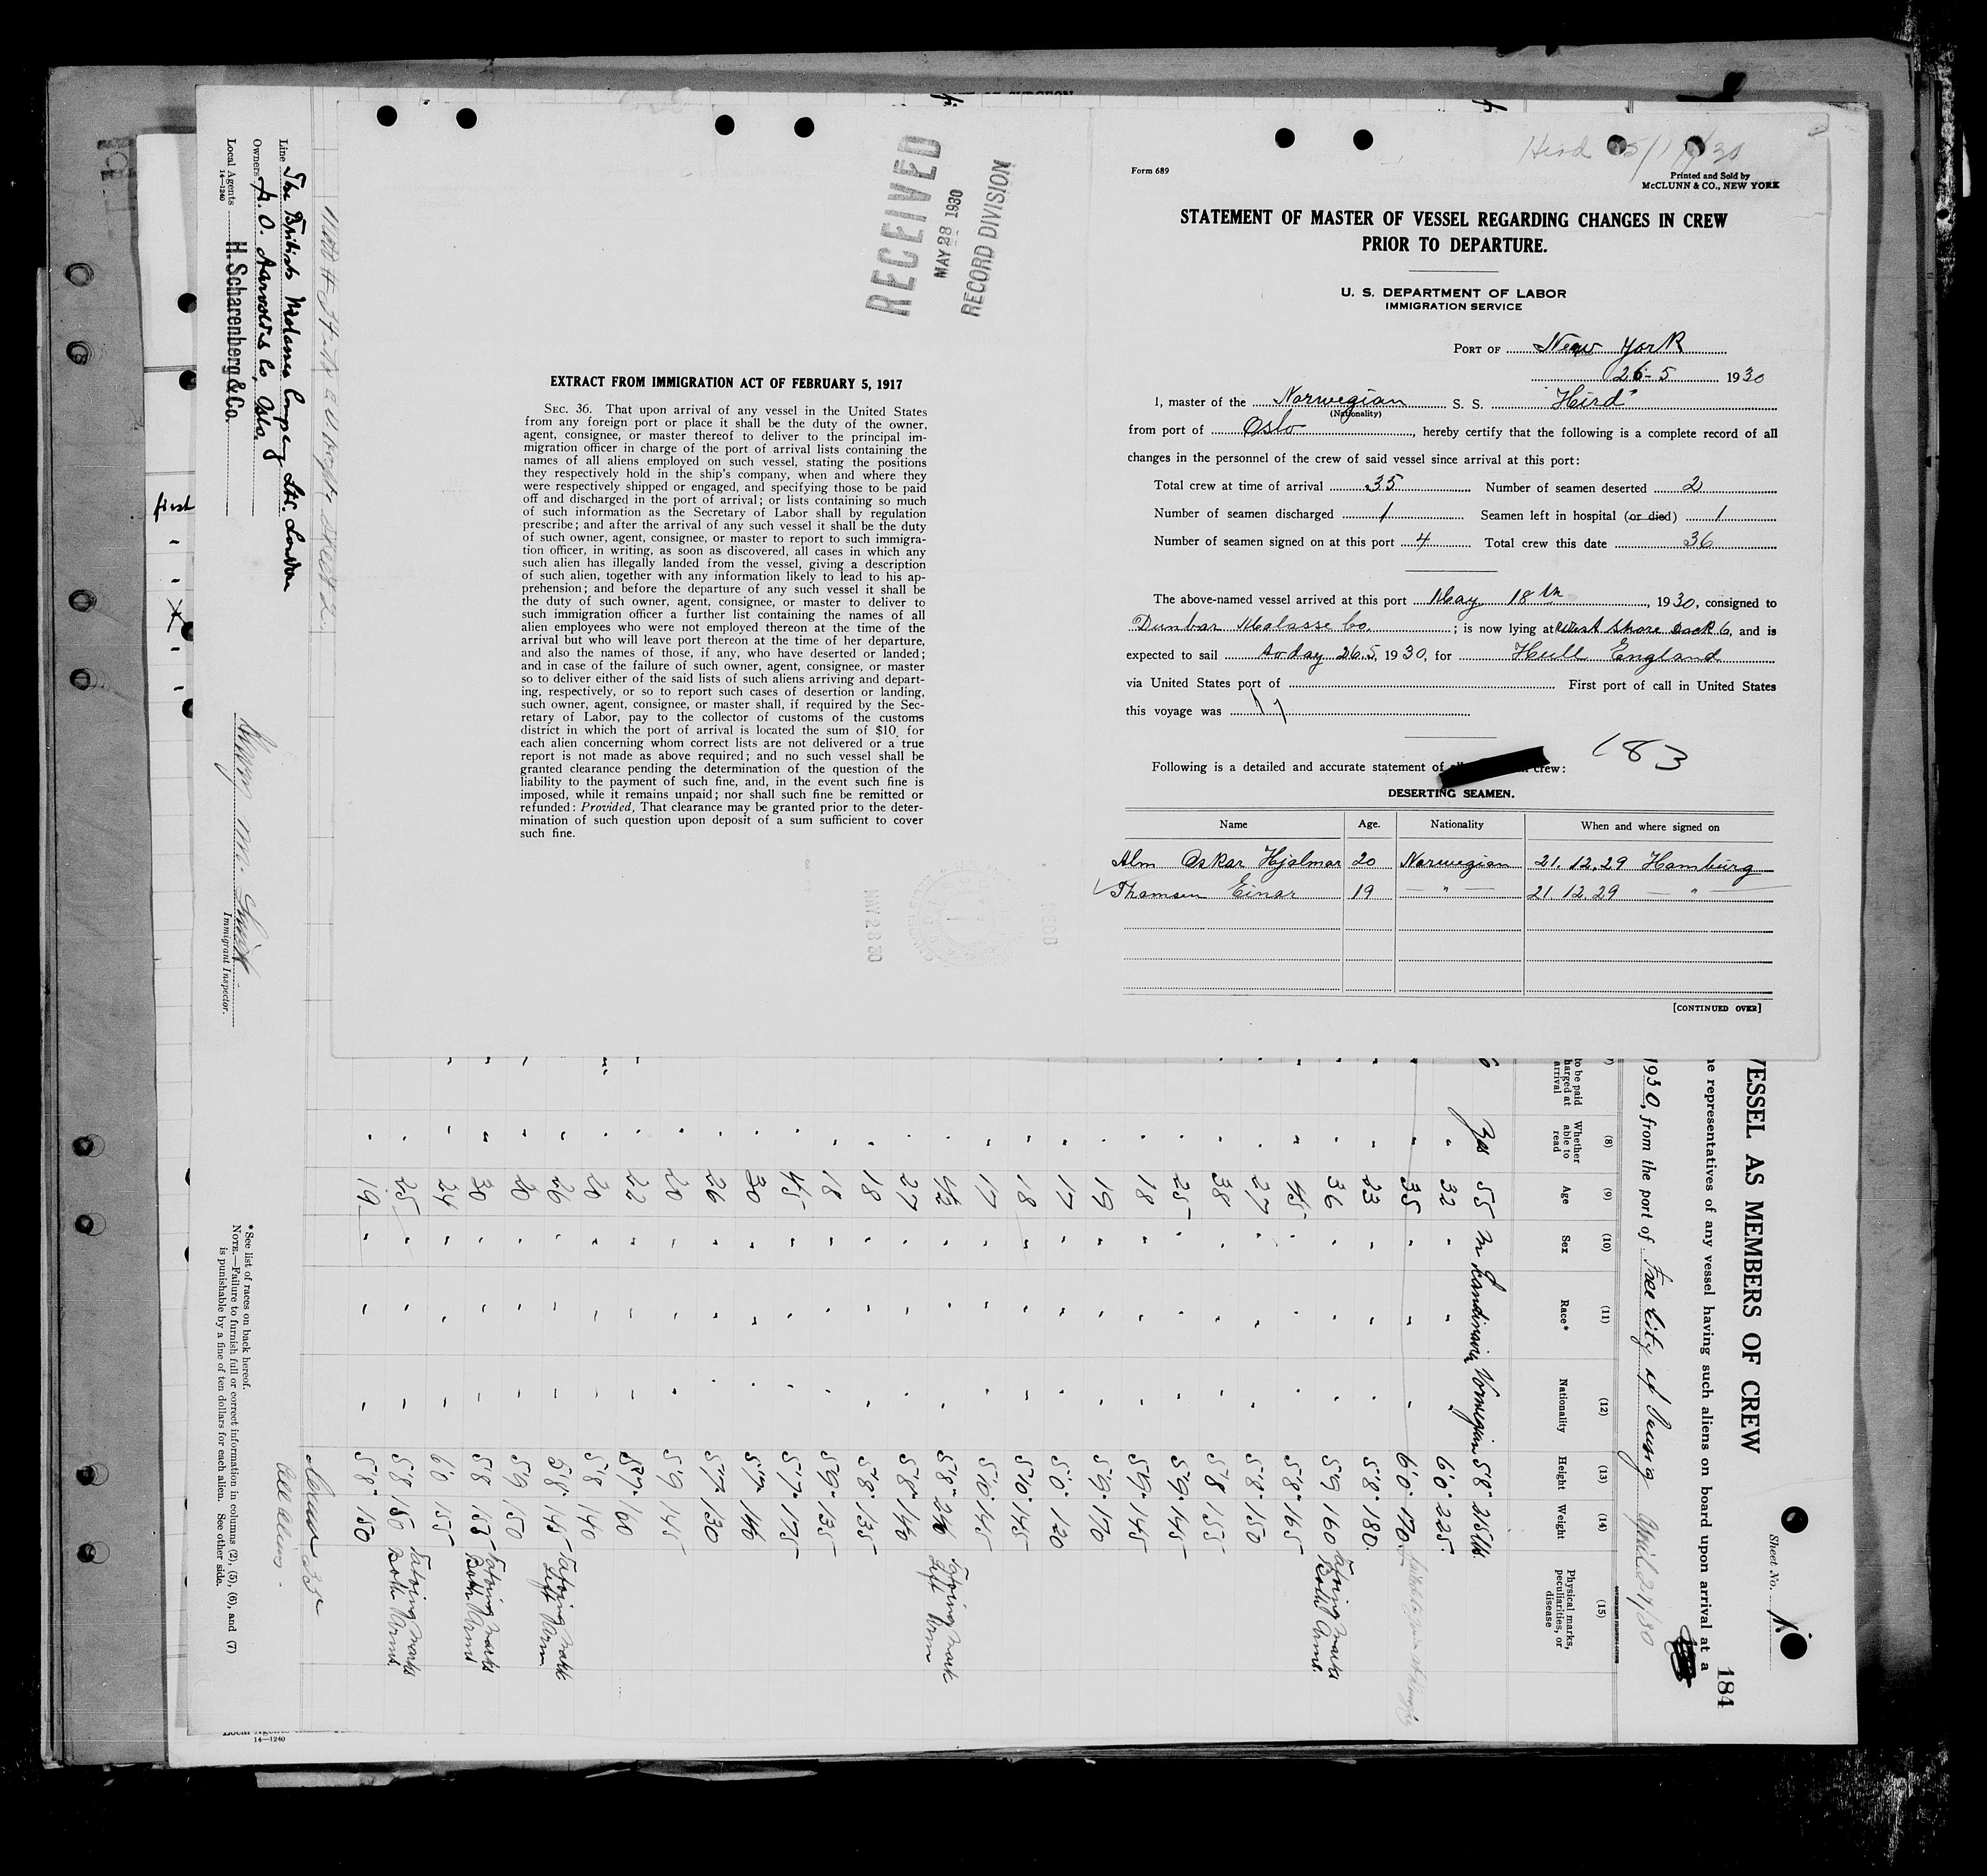 Form 689
Hird 5/1 /30
Printed and Sold by
McCLUNN & CO., NEW YORK
STATEMENT OF MASTER OF VESSEL REGARDING CHANGES IN CREW
PRIOR TO DEPARTURE.
U. S. DEPARTMENT OF LABOR
IMMIGRATION SERVICE
PORT OF New York
26-5 1930
I, master of the Norwegian S. S. "Hird"
(Nationality)
from port of Oslo, hereby certify that the following is a complete record of all
changes in the personnel of the crew of said vessel since arrival at this port:
Total crew at time of arrival 35 Number of seamen deserted 2
Number of seamen discharged 1 Seamen left in hospital (or died) 1
Number of seamen signed on at this port 4 Total crew this date 36
The above-named vessel arrived at this port May 18th, 1930, consigned to
Dunbar Malasse Co. ; is now lying at West Shore Dock 6, and is
expected to sail to day 26.5, 1930, for Hull England
via United States port of First port of call in United States
this voyage was
183
Following is a detailed and accurate statement of crew:
DESERTING SEAMEN.
Name Age. Nationality When and where signed on
Alm Oskar Hjalmar 20 Norwegian 21.12.29 Hamburg
Thomsen Einar 19 — " — 21.12.29 — " —
[CONTINUED OVER]
RECEIVED
MAY 28 1930
RECORD DIVISION
EXTRACT FROM IMMIGRATION ACT OF FEBRUARY 5, 1917
SEC. 36. That upon arrival of any vessel in the United States
from any foreign port or place it shall be the duty of the owner,
agent, consignee, or master thereof to deliver to the principal im-
migration officer in charge of the port of arrival lists containing the
names of all aliens employed on such vessel, stating the positions
they respectively hold in the ship's company, when and where they
were respectively shipped or engaged, and specifying those to be paid
off and discharged in the port of arrival; or lists containing so much
of such information as the Secretary of Labor shall by regulation
prescribe; and after the arrival of any such vessel it shall be the duty
of such owner, agent, consignee, or master to report to such immigra-
tion officer, in writing, as soon as discovered, all cases in which any
such alien has illegally landed from the vessel, giving a description
of such alien, together with any information likely to lead to his ap-
prehension; and before the departure of any such vessel it shall be
the duty of such owner, agent, consignee, or master to deliver to
such immigration officer a further list containing the names of all
alien employees who were not employed thereon at the time of the
arrival but who will leave port thereon at the time of her departure,
and also the names of those, if any, who have deserted or landed;
and in case of the failure of such owner, agent, consignee, or master
so to deliver either of the said lists of such aliens arriving and depart-
ing, respectively, or so to report such cases of desertion or landing,
such owner, agent, consignee, or master shall, if required by the Sec-
retary of Labor, pay to the collector of customs of the customs
district in which the port of arrival is located the sum of $10 for
each alien concerning whom correct lists are not delivered or a true
report is not made as above required; and no such vessel shall be
granted clearance pending the determination of the question of the
liability to the payment of such fine, and, in the event such fine is
imposed, while it remains unpaid; nor shall such fine be remitted or
refunded: Provided, That clearance may be granted prior to the deter-
mination of such question upon deposit of a sum sufficient to cover
such fine.
MAY 28 30
Sheet No. 1
184
VESSEL AS MEMBERS OF CREW
he representatives of any vessel having such aliens on board upon arrival at a
1930, from the port of Free City of Danzig April 24/30
to be paid
harged at
arrival
(8) (9) (10) (11) (12) (13) (14) (15)
Whether able to read Age Sex Race* Nationality Height Weight Physical marks, peculiarities, or disease
Yes 55 M Scandinavia Norwegian 5'8" 215 lbs
" 32 " " " 6'0" 225
" 35 " " " 6'0" 170
" 23 " " " 5'8" 180
" 36 " " " 5'9 160 Tatooing marks Both Arms.
" 45 " " " 5'8" 165
" 27 " " " 5'8" 150
" 38 " " " 5'8 155
" 25 " " " 5'9" 145
" 18 " " " 5'9" 145
" 19 " " " 5'9" 170
" 17 " " " 5'0" 120
" 18 " " " 5'10" 145
" 17 " " " 5'10" 145
" 43 " " " 5'8" Tatooing mark Left Arm
" 27 " " " 5'8" 140
" 18 " " " 5'8" 135
" 18 " " " 5'9" 135
" 45 " " " 5'7" 175
" 30 " " " 5'7" 140
" 26 " " " 5'7" 130
" 20 " " " 5'9 145
" 22 " " " 5'7" 160
" 20 " " " 5'8 140
" 26 " " " 5'8" 145 Tatooing mark Left Arm
" 20 " " " 5'9 150
" 30 " " " 5'8 155 Tatooing marks Both Arms
" 24 " " " 6'0 155
" 25 " " " 5'8 150 Tatooing marks Both Arms.
" 19 " " " 5'8" 150
All Aliens.
*See list of races on back hereof.
NOTE.—Failure to furnish full or correct information in columns (2), (5), (6), and (7)
is punishable by a fine of ten dollars for each alien. See other side.
Line The British Molasses Company Ltd. London
Owners A. O. Andvord & Co, Oslo.
Local Agents H. Scharenberg & Co.
14—1240
Immigrant Inspector.
first
14—1240